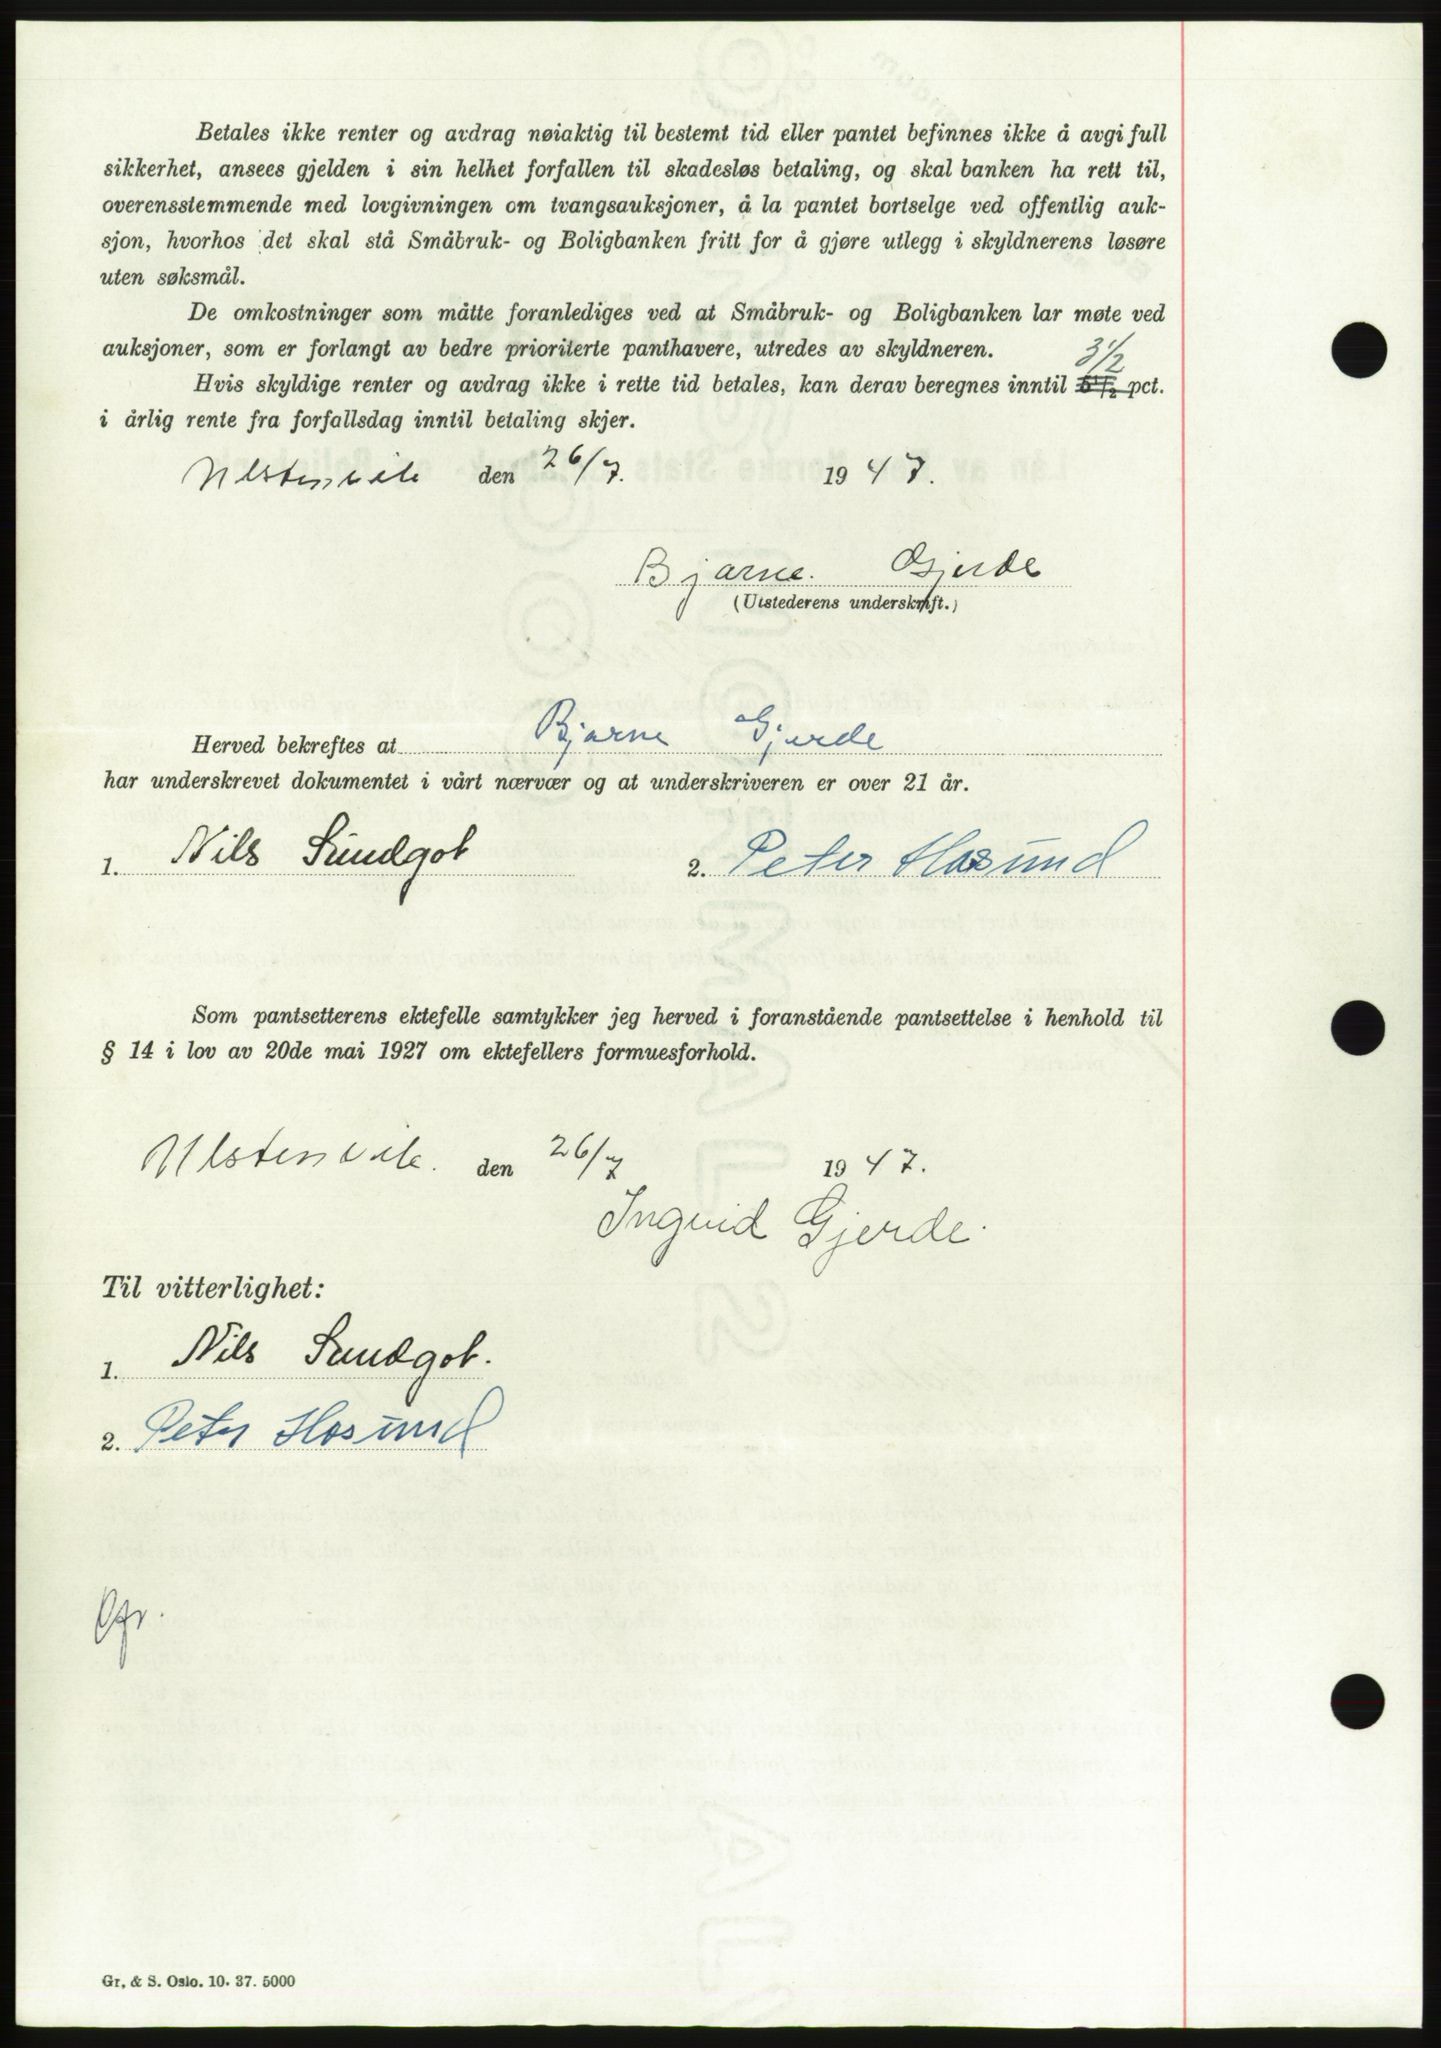 Betales ikke renter og avdrag nøiaktig til bestemt tid eller pantet befinnes ikke å avgi full
sikkerhet, ansees gjelden i sin helhet forfallen til skadesløs betaling, og skal banken ha rett til,
overensstemmende med lovgivningen om tvangsauksjoner, å la pantet bortselge ved offentlig auk-
sjon, hvorhos det skal stå Småbruk- og Boligbanken fritt for å gjøre utlegg i skyldnerens løsøre
uten søksmål.
De omkostninger som måtte foranlediges ved at Småbruk- og Boligbanken lar møte ved
auksjoner, som er forlangt av bedre prioriterte panthavere, utredes av skyldneren.
3 1/2
Hvis skyldige renter og avdrag ikke i rette tid betales, kan derav beregnes inntil 5 1/2 pct.
i årlig rente fra forfallsdag inntil betaling skjer.
Ulsteinvik den 26/7. 1947.
Bjarne Gjerde
(Utstederens underskrift.)
Herved bekreftes at Bjarne Gjerde
har underskrevet dokumentet i vårt nærvær og at underskriveren er over 21 år.
1. Nils Sundgot 2. Peter Hasund
Som pantsetterens ektefelle samtykker jeg herved i foranstående pantsettelse i henhold til
§ 14 i lov av 20de mai 1927 om ektefellers formuesforhold.
Ulsteinvik. den 26/7 1947.
Ingvid Gjerde.
Til vitterlighet:
1. Nils Sundgot.
2. Peter Hasund
Gr. & S. Oslo. 10. 37. 5000